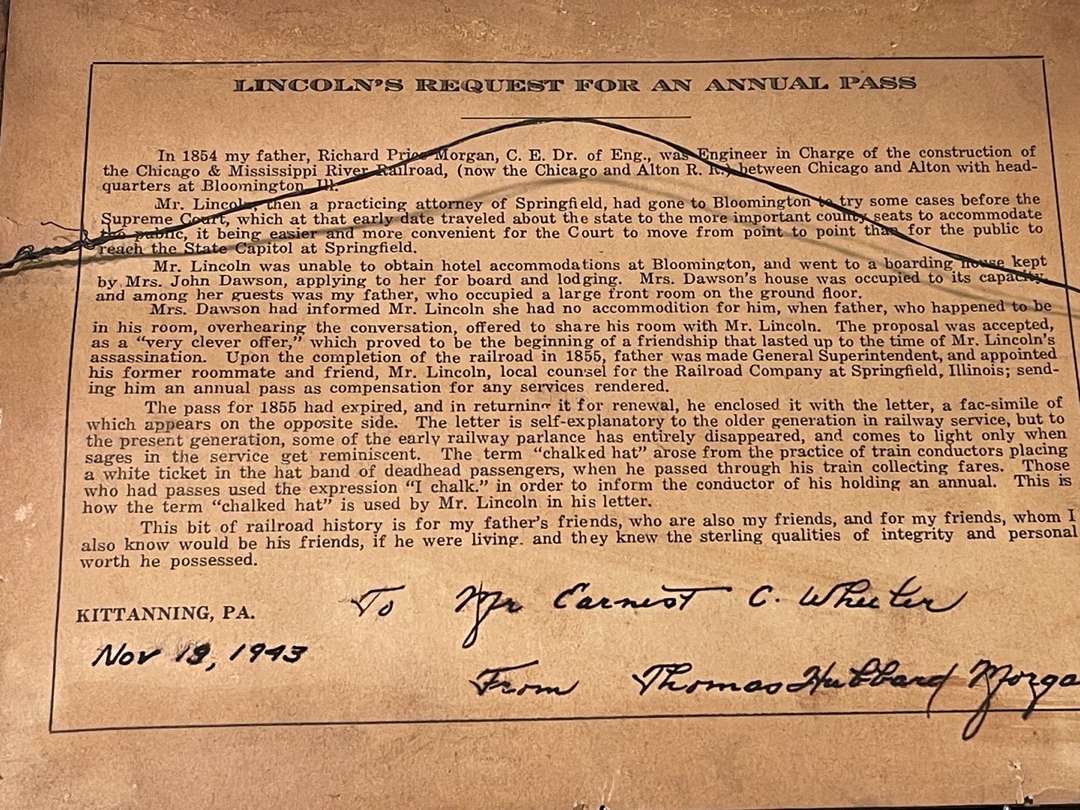 LINCOLN'S REQUEST FOR AN ANNUAL PASS
In 1854 my father, Richard Price Morgan, C. E. Dr. of Eng., was Engineer in Charge of the construction of
the Chicago & Mississippi River Railroad, (now the Chicago and Alton R. R.) between Chicago and Alton with head-
quarters at Bloomington, Ill.
Mr. Lincoln, then a practicing attorney of Springfield, had gone to Bloomington to try some cases before the
Supreme Court, which at that early date traveled about the state to the more important county seats to accommodate
the public, it being easier and more convenient for the Court to move from point to point than for the public to
reach the State Capitol at Springfield.
Mr. Lincoln was unable to obtain hotel accommodations at Bloomington, and went to a boarding house kept
by Mrs. John Dawson, applying to her for board and lodging. Mrs. Dawson's house was occupied to its capacity,
and among her guests was my father, who occupied a large front room on the ground floor.
Mrs. Dawson had informed Mr. Lincoln she had no accommodation for him, when father, who happened to be
in his room, overhearing the conversation, offered to share his room with Mr. Lincoln. The proposal was accepted,
as a "very clever offer," which proved to be the beginning of a friendship that lasted up to the time of Mr. Lincoln's
assassination. Upon the completion of the railroad in 1855, father was made General Superintendent, and appointed
his former roommate and friend, Mr. Lincoln, local counsel for the Railroad Company at Springfield, Illinois; send-
ing him an annual pass as compensation for any services rendered.
The pass for 1855 had expired, and in returning it for renewal, he enclosed it with the letter, a fac-simile of
which appears on the opposite side. The letter is self-explanatory to the older generation in railway service, but to
the present generation, some of the early railway parlance has entirely disappeared, and comes to light only when
sages in the service get reminiscent. The term "chalked hat" arose from the practice of train conductors placing
a white ticket in the hat band of deadhead passengers, when he passed through his train collecting fares. Those
who had passes used the expression "I chalk." in order to inform the conductor of his holding an annual. This is
how the term "chalked hat" is used by Mr. Lincoln in his letter.
This bit of railroad history is for my father's friends, who are also my friends, and for my friends, whom I
also know would be his friends, if he were living. and they knew the sterling qualities of integrity and personal
worth he possessed.
To Mr Earnest C. Wheeler
KITTANNING, PA.
Nov 18, 1943
From Thomas Hubbard Morga